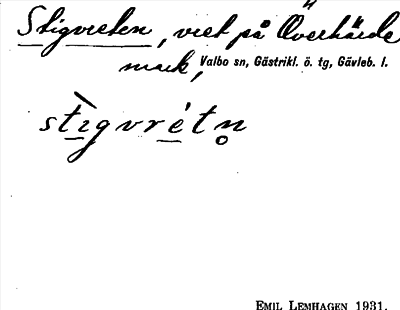 Stigvreten, vret på Överhärde
mark, Valbo sn, Gästrikl. ö. tg, Gävleb. l.
stigvrétn
EMIL LEMHAGEN 1931.